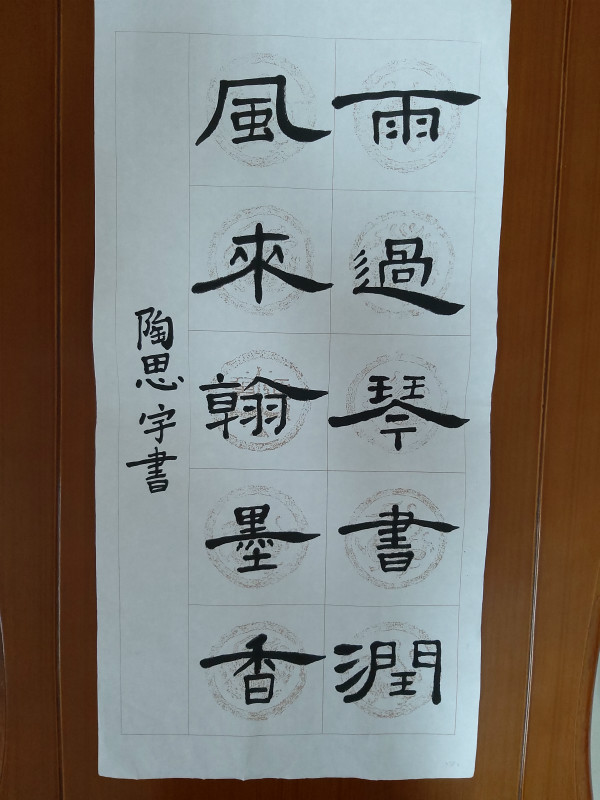 雨過琴書潤
風來翰墨香
陶思宇書